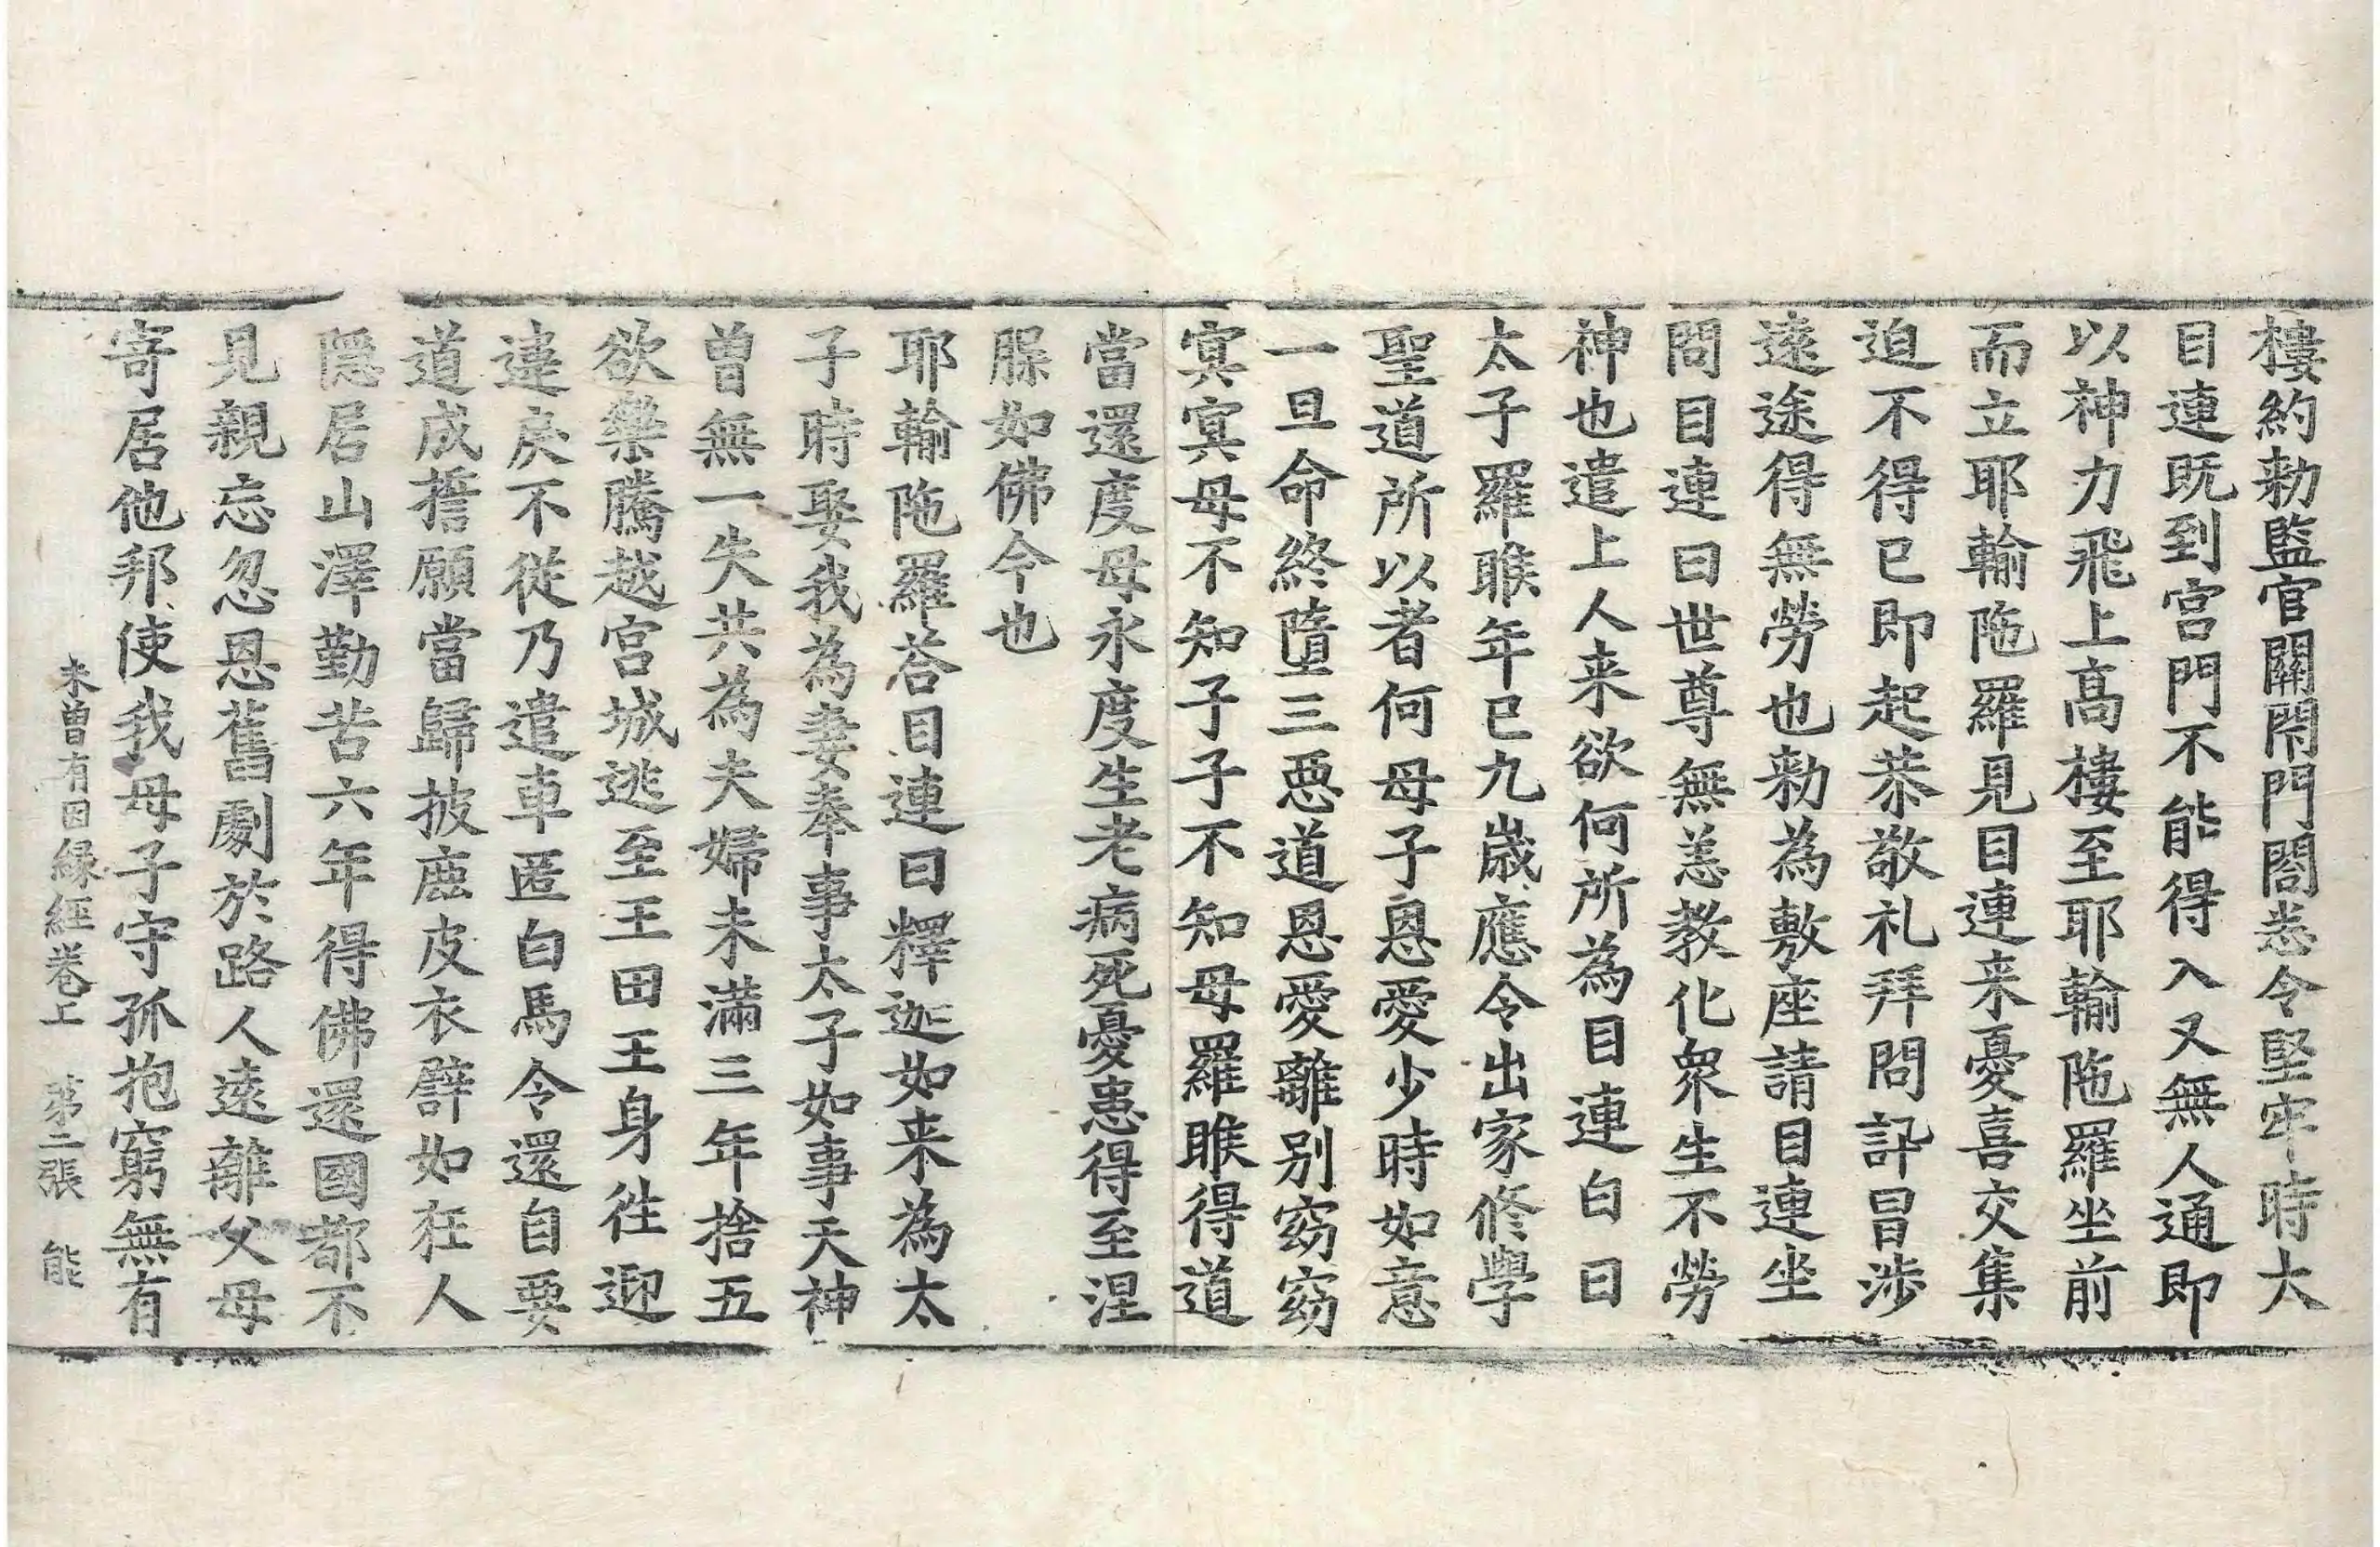 樓約勑監官關閉門閤悉令堅牢時大
目連既到宮門不能得入又無人通即
以神力飛上高樓至耶輸陁羅坐前
而立耶輸陁羅見目連来憂喜交集
迫不得已即起恭敬礼拜問訊冒涉
遠途得無勞也勑為敷座請目連坐
問目連曰世尊無恙教化衆生不勞
神也遣上人来欲何所為目連白曰
太子羅睺年已九歳應令出家修學
聖道所以者何母子恩愛少時如意
一旦命終墮三惡道恩愛離別窈窈
冥冥母不知子子不知母羅睺得道
當還度母永度生老病死憂患得至涅
腂如佛今也
耶輸陁羅荅目連曰釋迦如来為太
子時娶我為妻奉事太子如事天神
曽無一失共為夫婦未滿三年捨五
欲樂騰越宮城逃至王田王身徃迎
違戾不從乃遣車匿白馬令還自要
道成擔願當歸披鹿皮衣辟如狂人
隱居山澤勤苦六年得佛還國都不
見親忘忽恩舊劇於路人遠離父母
寄居他邦使我母子守孤抱窮無有
未曽有因縁經卷上 第二張 能